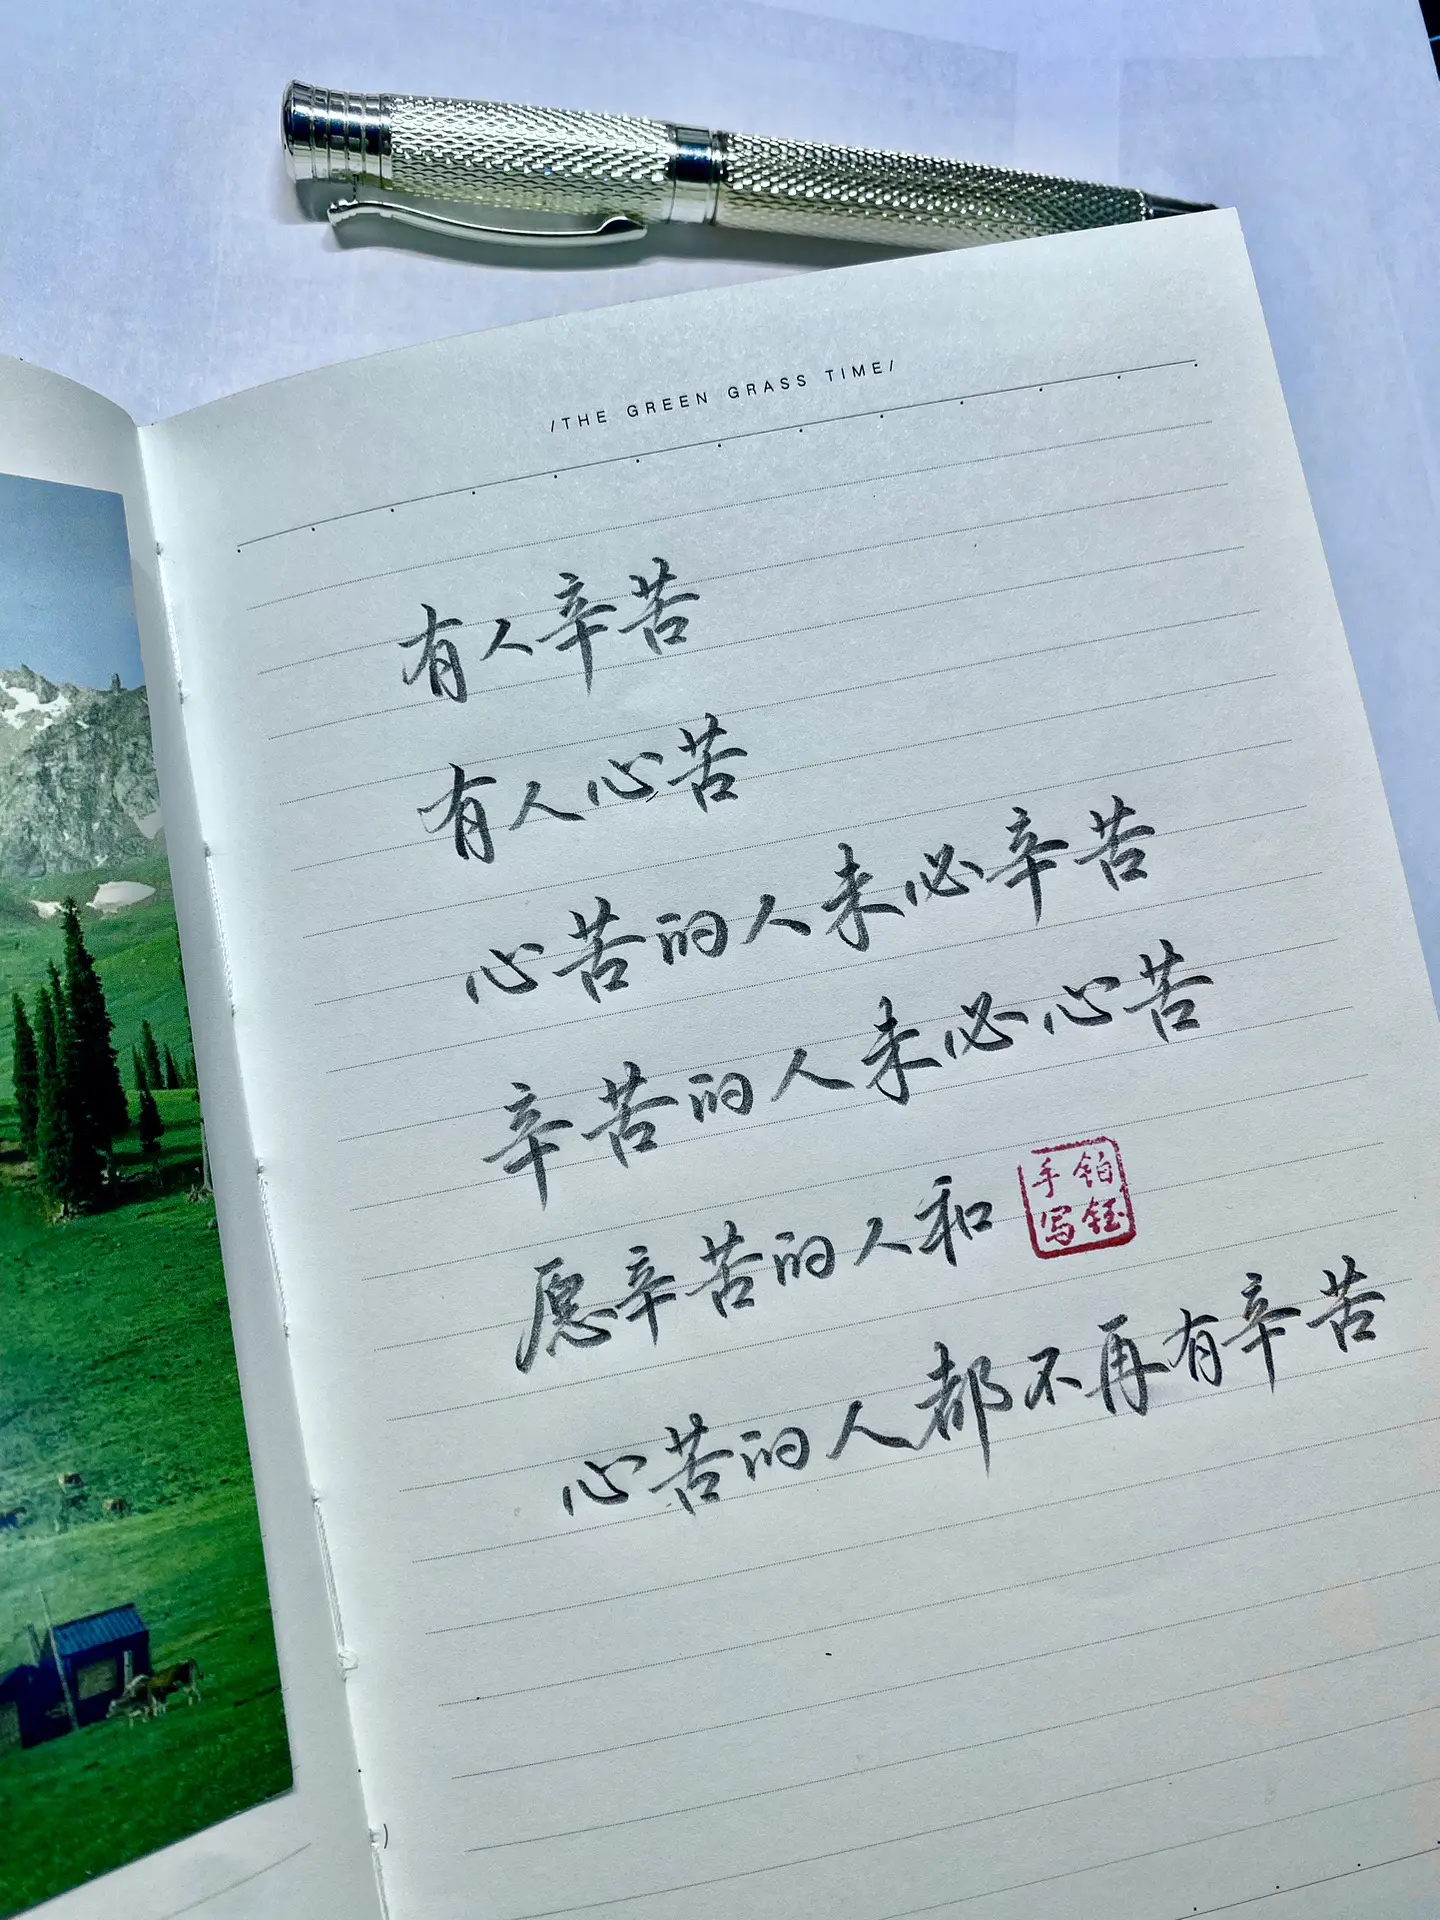 /THE GREEN GRASS TIME/
有人辛苦
有人心苦
心苦的人未必辛苦
辛苦的人未必心苦
愿辛苦的人和
铂钰手写
心苦的人都不再有辛苦